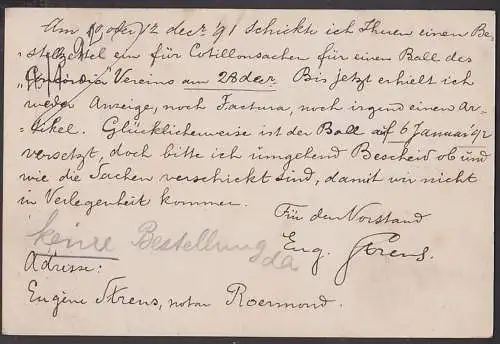 Am 10 oder 12 decr '91 schickte ich Ihnen einen Be-
stelzettel ein für Cotillonsachen für einen Ball des
"Concordia" Vereins am 28 der. Bis jetzt erhielt ich
weder Anzeige, noch Factura, noch irgend einen Ar-
tikel. Glücklicherweise ist der Ball auf 6 Januar '92
versetzt, doch bitte ich umgehend Bescheid ob und
wie die Sachen verschickt sind, damit wir nicht
in Verlegenheit kommen.
Für den Vorstand
Eug. Strens.
keine Bestellung
da
Adresse:
Eugène Strens, notar Roermond.